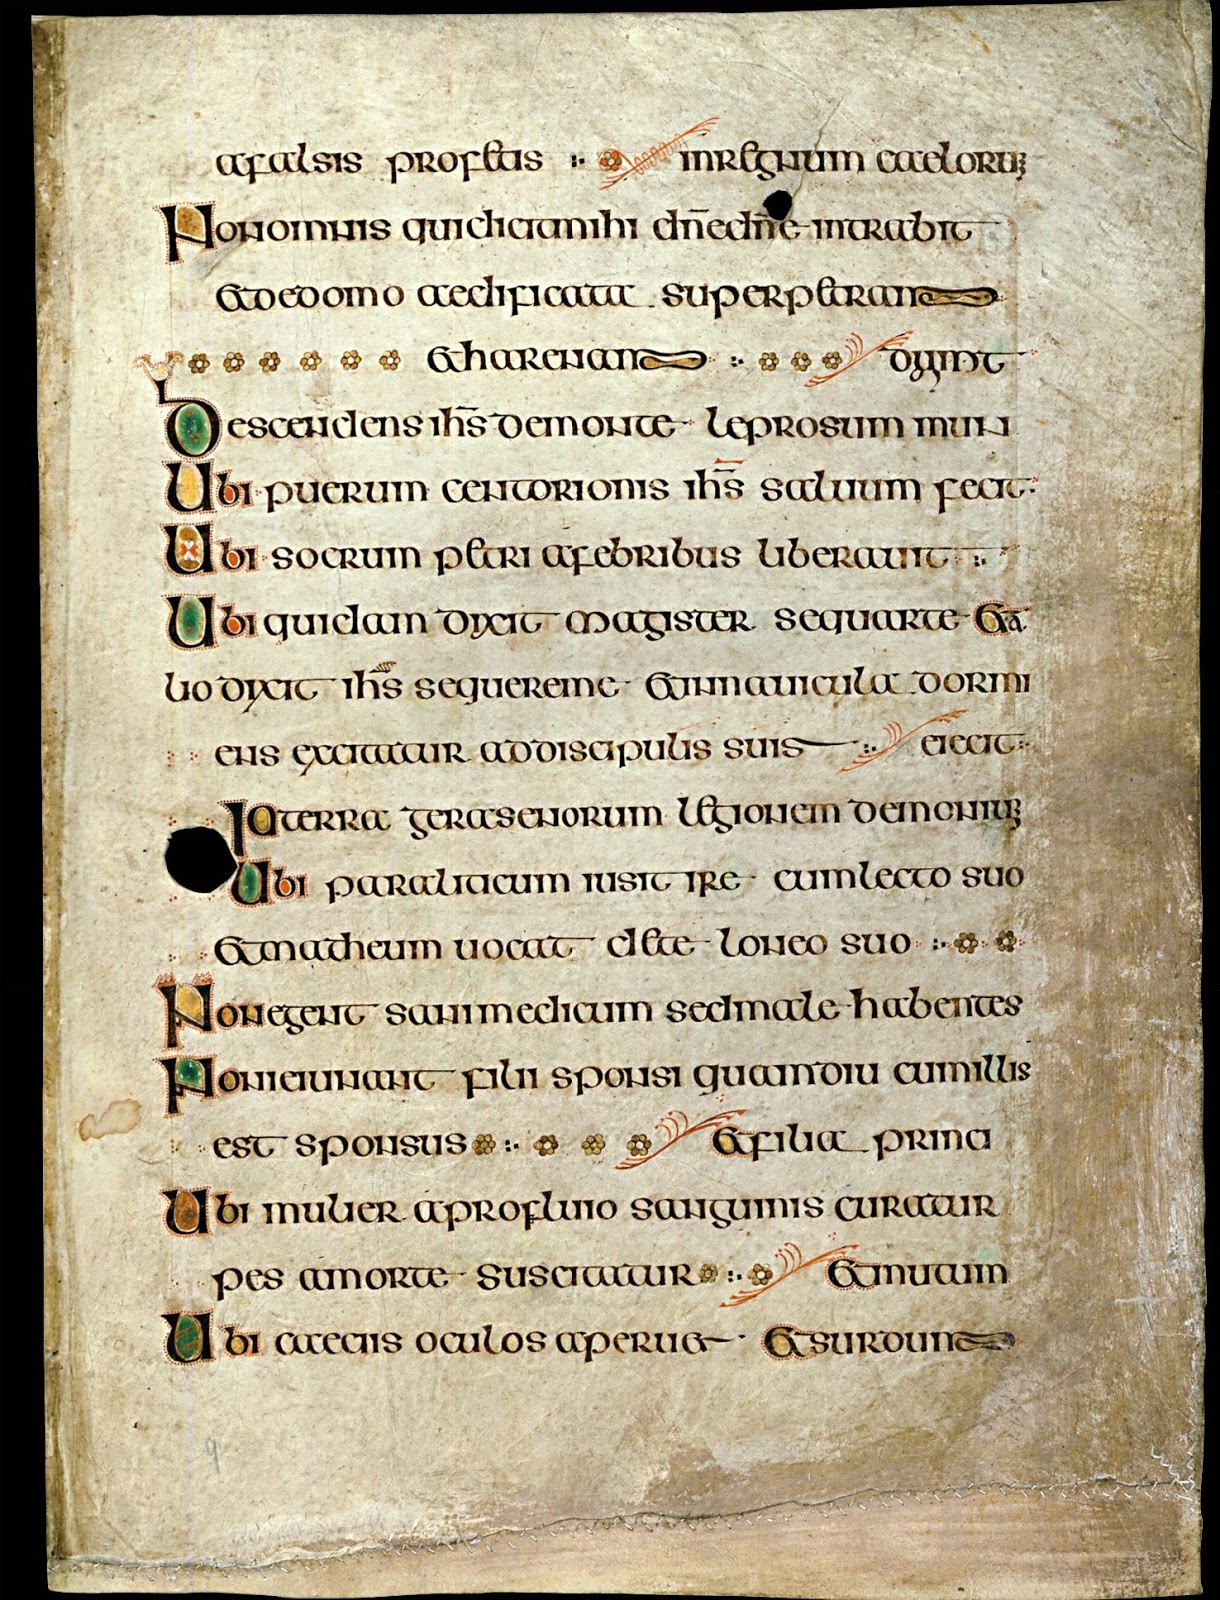 afalsis profetis in regnum caeloruꝫ
Nonomnis quidicitmihi dn̄edn̄e intrabit
etdedomo aedificata superpetram
etharenam dixit
Descendens ihs̄ demonte leprosum mun
Ubi puerum centorionis ihs̄ saluum fecit
Ubi socrum petri afebribus liberauit
Ubi quidam dixit magister sequarte eta
lio dixit ihs̄ sequereme etinnauicula dormi
ens excitatur addiscipulis suis eiecit
In terra gerasenorum legionem demoniuꝫ
Ubi paraliticum iusit ire cumlecto suo
etmatheum uocat de te loneo suo
Nonegent sani medicum sedmale habentes
Noniciunant filii sponsi quamdiu cumillis
est sponsus etfilia princi
Ubi mulier aprofluio sanguinis curatur
pes amorte suscitatur etmutum
Ubi caecis oculos aperuet etsurdum
9